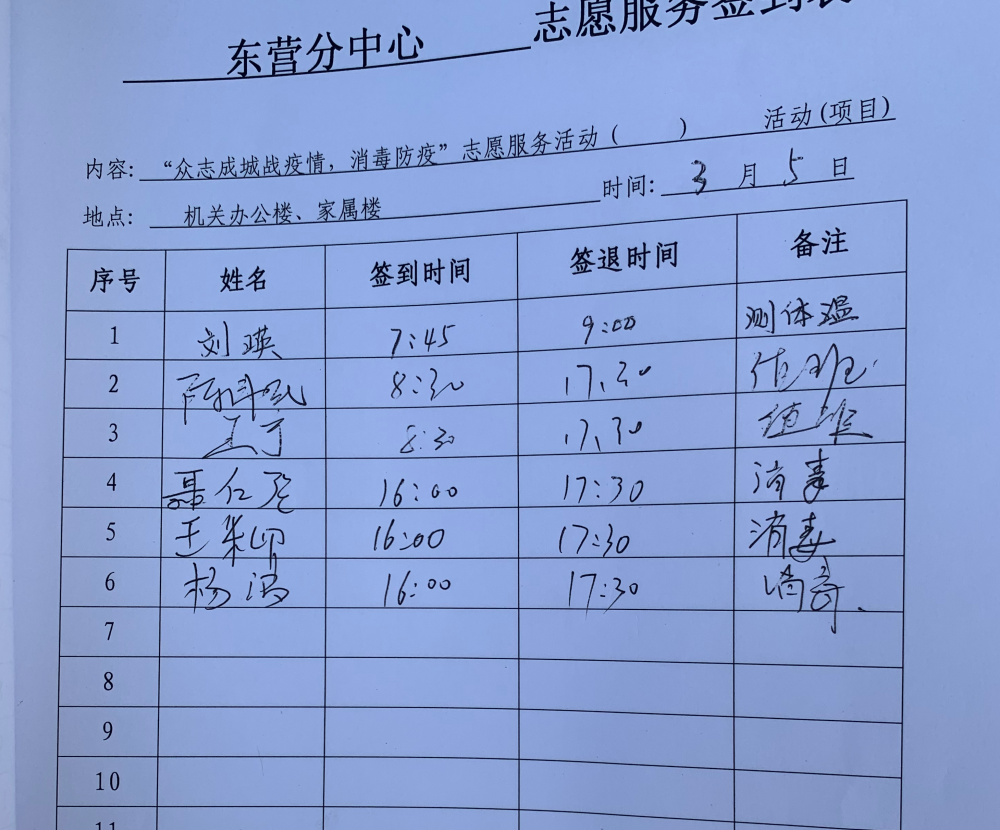 东营分中心 志愿服务签到表
内容: “众志成城战疫情，消毒防疫”志愿服务活动（ ） 活动(项目)
地点: 机关办公楼、家属楼 时间: 3 月 5 日
序号 姓名 签到时间 签退时间 备注
1 刘瑛 7:45 9:00 测体温
2 8:30 17:30 值班
3 8:30 17:30 值班
4 聂仁 16:00 17:30 消毒
5 王 16:00 17:30 消毒
6 杨 16:00 17:30 消毒
7
8
9
10
11